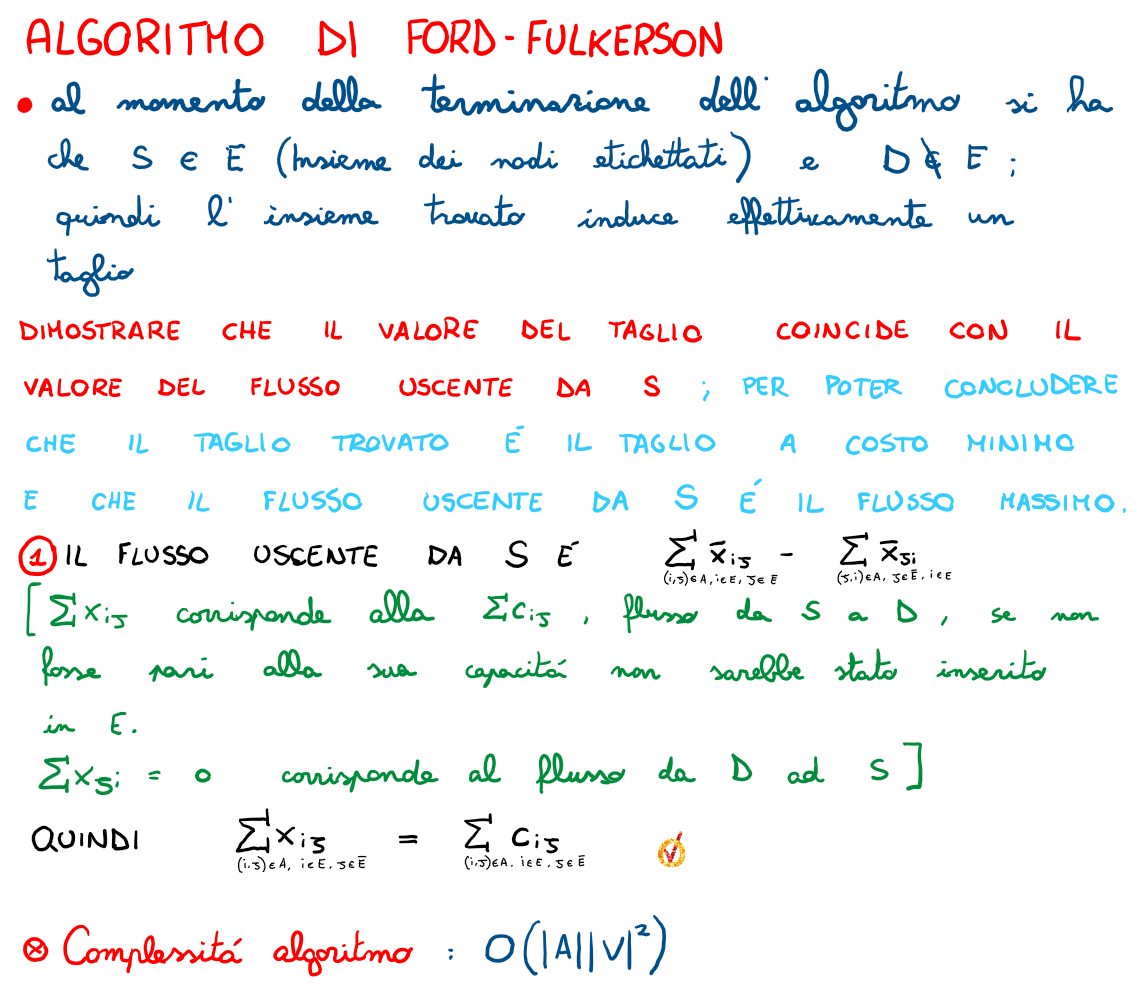 ALGORITMO DI FORD-FULKERSON
• al momento della terminazione dell' algoritmo si ha
che S ∈ E (Insieme dei nodi etichettati) e D ∉ E ;
quindi l' insieme trovato induce effettivamente un
taglio
DIMOSTRARE CHE IL VALORE DEL TAGLIO COINCIDE CON IL
VALORE DEL FLUSSO USCENTE DA S ; PER POTER CONCLUDERE
CHE IL TAGLIO TROVATO É IL TAGLIO A COSTO MINIMO
E CHE IL FLUSSO USCENTE DA S É IL FLUSSO MASSIMO.
① IL FLUSSO USCENTE DA S É ∑ x̄ij - ∑ x̄ji
(i,j)∈A, i∈E, j∈E (j,i)∈A, j∈Ē, i∈E
[∑xij corrisponde alla ∑cij , flusso da S a D , se non
fosse pari alla sua capacitá non sarebbe stato inserito
in E.
∑xji = 0 corrisponde al flusso da D ad S]
QUINDI ∑xij = ∑ cij
(i,j)∈A, i∈E, j∈Ē (i,j)∈A, i∈E, j∈Ē
⊗ Complessitá algoritmo : O(|A||V|²)